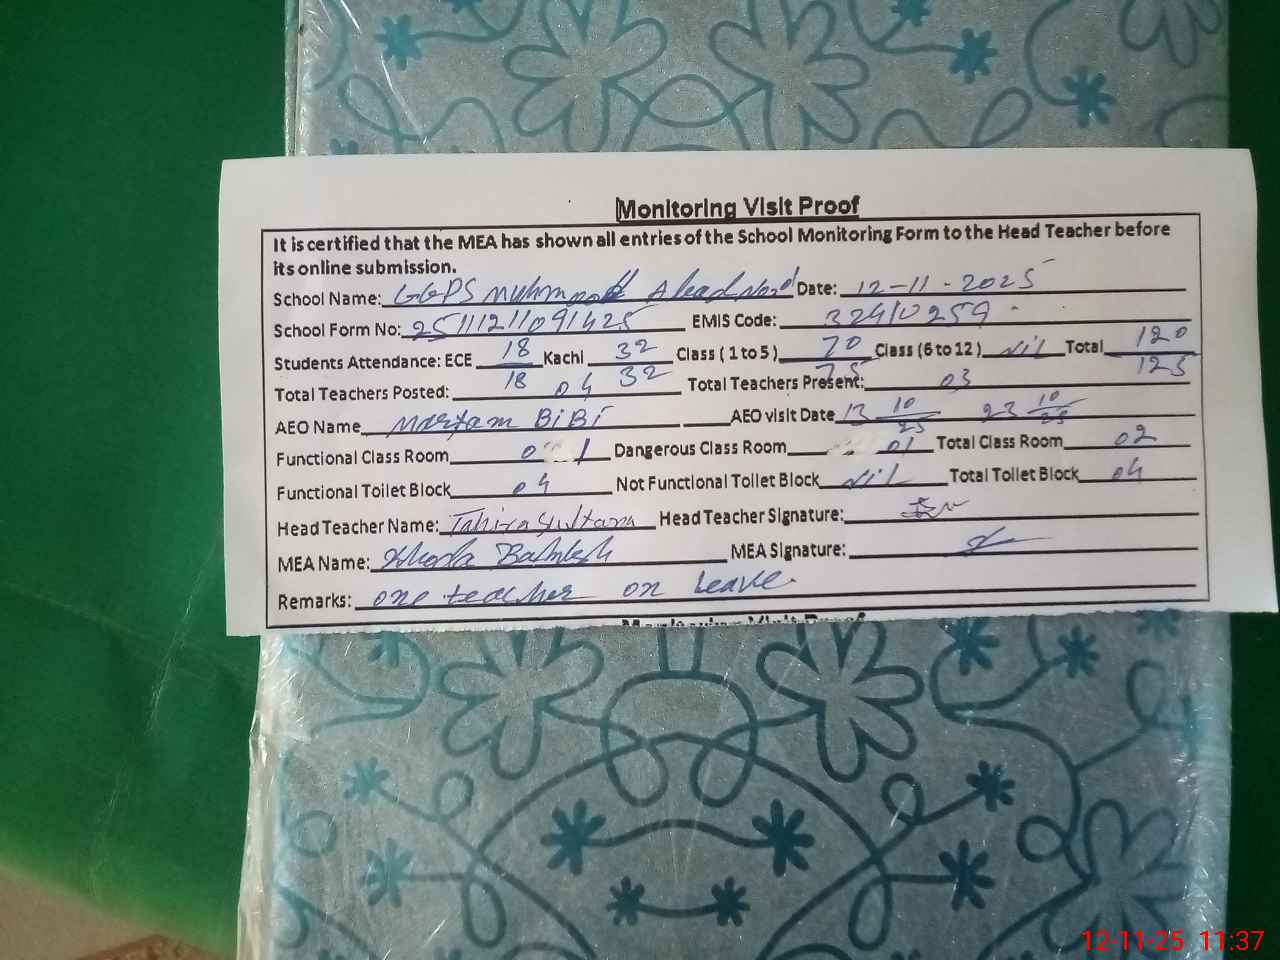 Monitoring Visit Proof
It is certified that the MEA has shown all entries of the School Monitoring Form to the Head Teacher before
its online submission.
School Name: GGPS Date: 12-11-2025
School Form No: 25111211091425 EMIS Code: 32410259
Students Attendance: ECE 18/18 Kachi 32/32 Class (1 to 5) 70/75 Class (6 to 12) Nil Total 120/125
Total Teachers Posted: 04 Total Teachers Present: 03
AEO Name Maryam BiBi AEO visit Date 13 10/25 23 10/25
Functional Class Room 01 Dangerous Class Room 01 Total Class Room 02
Functional Toilet Block 04 Not Functional Toilet Block Nil Total Toilet Block 04
Head Teacher Name: Tahira Sultana Head Teacher Signature:
MEA Name: Bakhsh MEA Signature:
Remarks: one teacher on Leave.
Monitoring Visit Proof
12-11-25 11:37